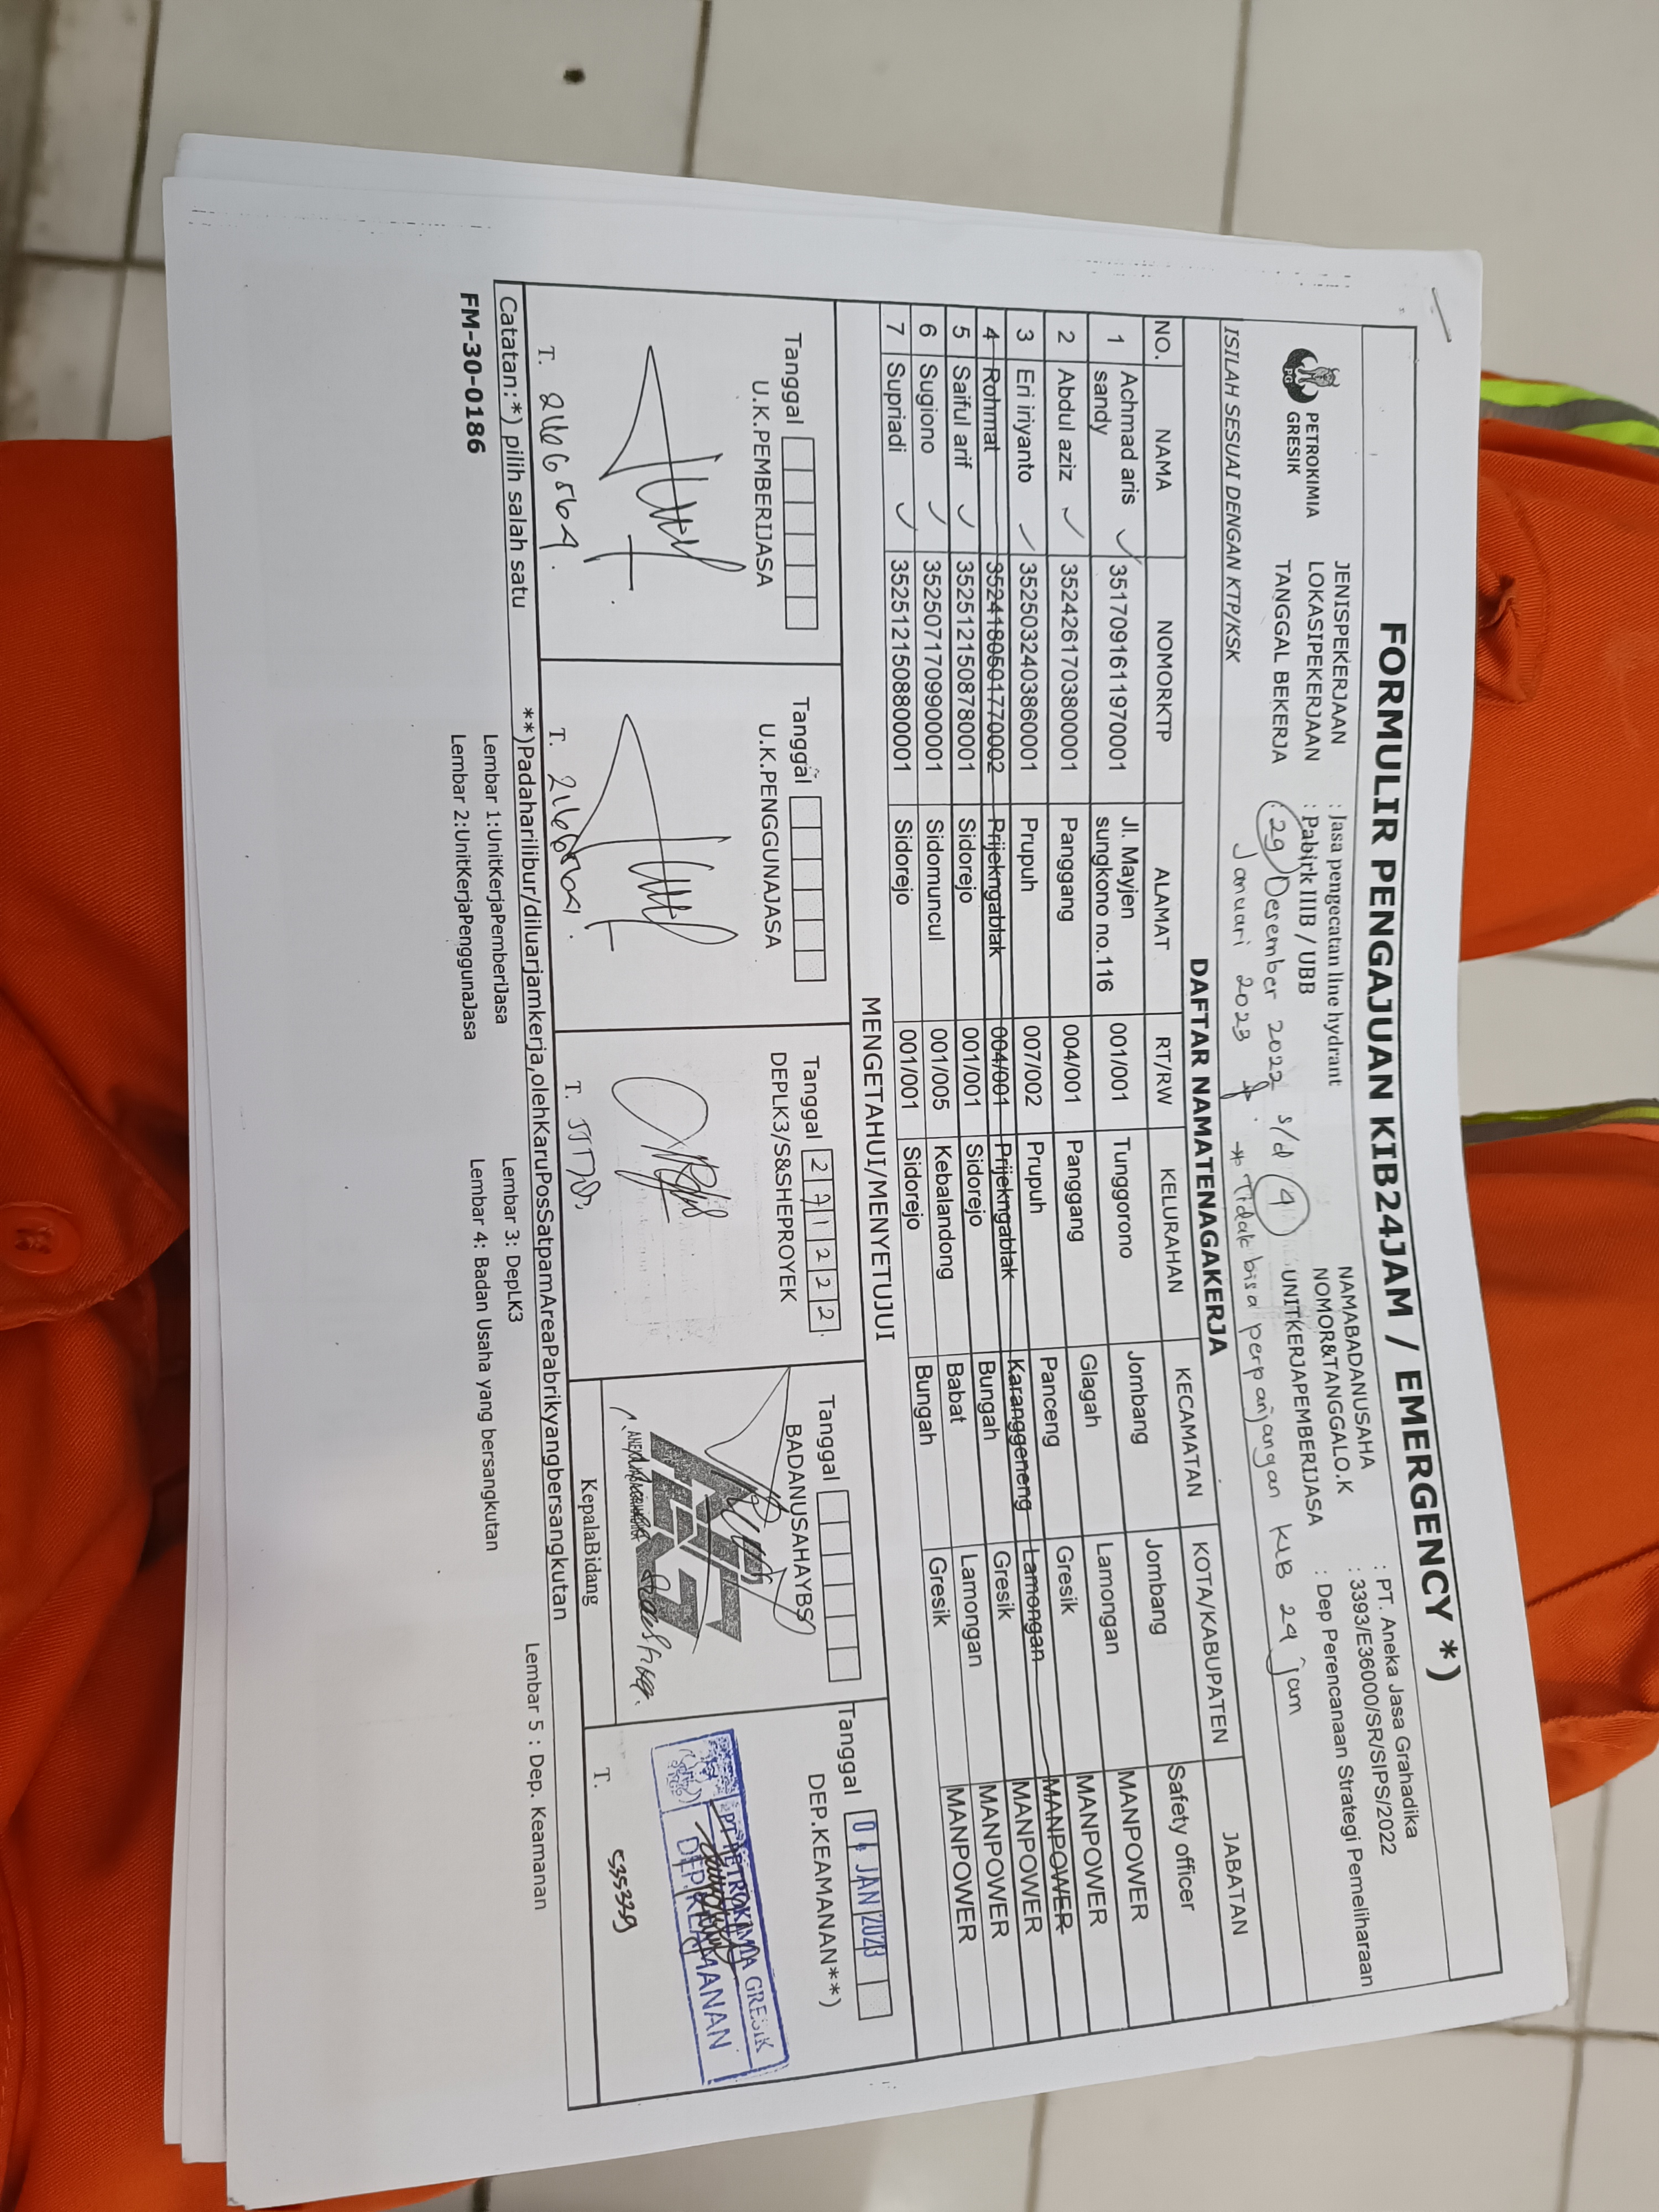 FORMULIR PENGAJUAN KIB24JAM / EMERGENCY *)
PETROKIMIA
GRESIK
JENISPEKERJAAN : Jasa pengecatan line hydrant
LOKASIPEKERJAAN : Pabirk IIIB / UBB
TANGGAL BEKERJA : 29 Desember 2022 s/d 4
Januari 2023
NAMABADANUSAHA : PT. Aneka Jasa Grahadika
NOMOR&TANGGALO.K : 3393/E36000/SR/SIPS/2022
UNITKERJAPEMBERIJASA : Dep Perencanaan Strategi Pemeliharaan
* Tidak bisa perpanjangan KIB 24 jam
ISILAH SESUAI DENGAN KTP/KSK
DAFTAR NAMATENAGAKERJA
NO. NAMA NOMORKTP ALAMAT RT/RW KELURAHAN KECAMATAN KOTA/KABUPATEN JABATAN
1 Achmad aris sandy 3517091611970001 Jl. Mayjen sungkono no.116 001/001 Tunggorono Jombang Jombang Safety officer
2 Abdul aziz 3524261703800001 Panggang 004/001 Panggang Glagah Lamongan MANPOWER
3 Eri iriyanto 3525032403860001 Prupuh 007/002 Prupuh Panceng Gresik MANPOWER
4 Rohmat 3524180501770002 Prijekngablak 004/001 Prijekngablak Karanggeneng Lamongan MANPOWER
5 Saiful arif 3525121508780001 Sidorejo 001/001 Sidorejo Bungah Gresik MANPOWER
6 Sugiono 3525071709900001 Sidomuncul 001/005 Kebalandong Babat Lamongan MANPOWER
7 Supriadi 3525121508800001 Sidorejo 001/001 Sidorejo Bungah Gresik MANPOWER
MENGETAHUI/MENYETUJUI
Tanggal
U.K.PEMBERIJASA
T.
Tanggal
U.K.PENGGUNAJASA
T.
Tanggal 271222
DEPLK3/S&SHEPROYEK
T.
Tanggal
BADANUSAHAYBS
KepalaBidang
Tanggal 04 JAN 2023
DEP.KEAMANAN**)
PT PETROKIMIA GRESIK
DEP. KEAMANAN
T. 535339
Catatan:*) pilih salah satu **)Padaharilibur/diluarjamkerja,olehKaruPosSatpamAreaPabrikyangbersangkutan
FM-30-0186
Lembar 1:UnitKerjaPemberiJasa
Lembar 2:UnitKerjaPenggunaJasa
Lembar 3: DepLK3
Lembar 4: Badan Usaha yang bersangkutan
Lembar 5 : Dep. Keamanan